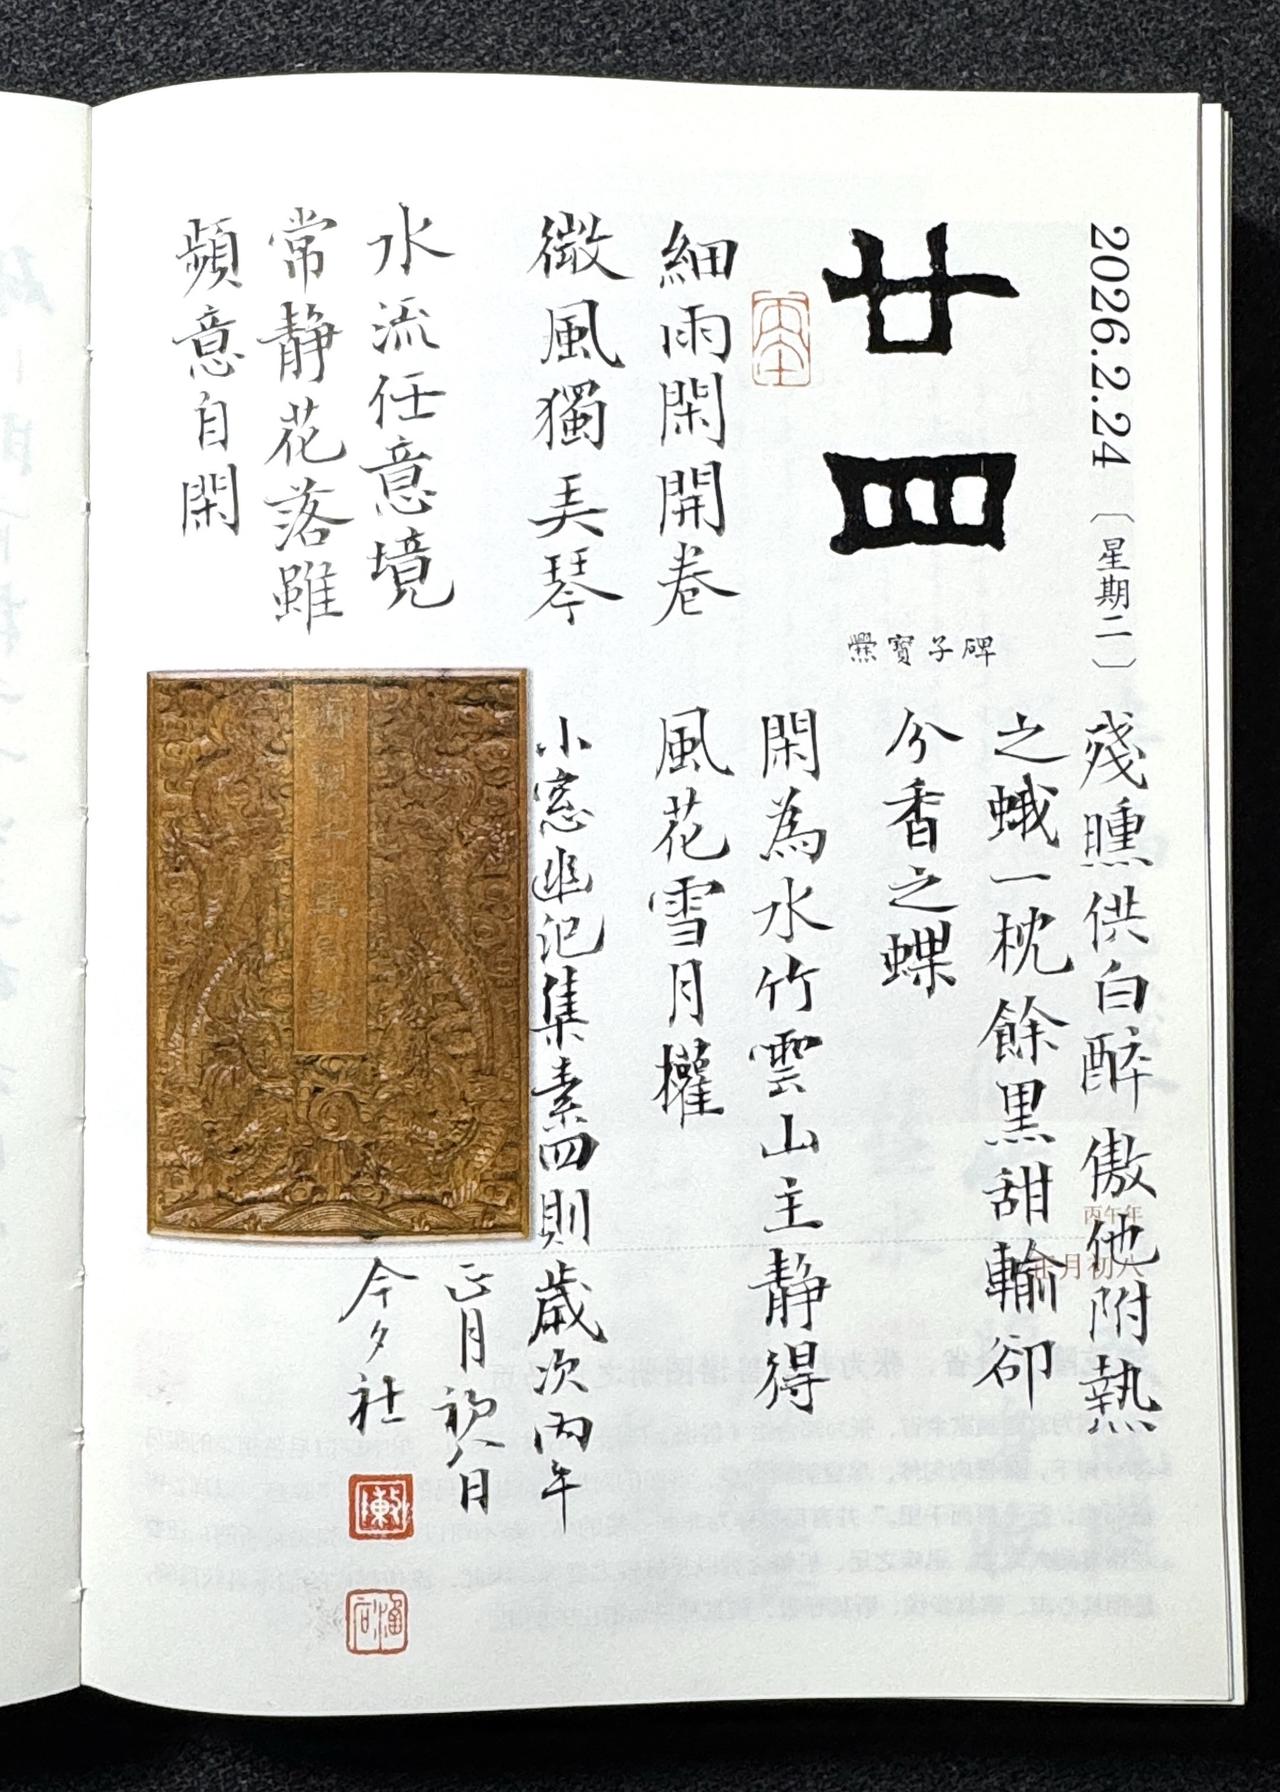 2026.2.24〔星期二〕
廿四
爨寶子碑
丙午年
正月初八
細雨閑開卷
微風獨弄琴
水流任意境
常靜花落雖
頻意自閑
殘曛供白醉傲他附熱
之蛾一枕餘黑甜輸卻
分香之蝶
閑為水竹雲山主靜得
風花雪月權
小窗幽记集素四則歲次丙午
正月初八日
今夕社